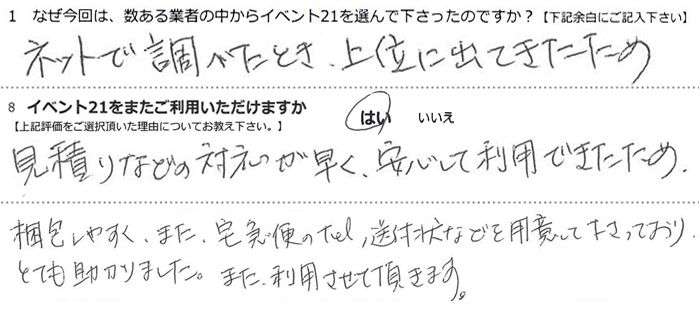 1 なぜ今回は、数ある業者の中からイベント21を選んで下さったのですか？【下記余白にご記入下さい】
ネットで調べたとき、上位に出てきたため
8 イベント21をまたご利用いただけますか はい いいえ
【上記評価をご選択頂いた理由についてお教え下さい。】
見積りなどの対応が早く、安心して利用できたため.
梱包しやすく、また、宅急便のTel,送付状などを用意して下さっており、
とても助かりました。また、利用させて頂きます。